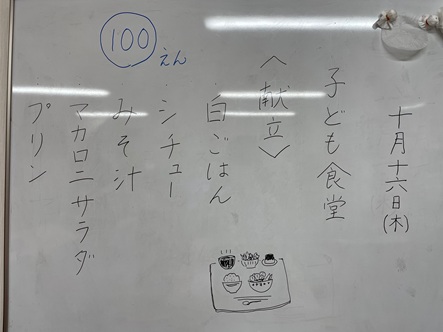 十月十六日(木)
子ども食堂
〈献立〉
白ごはん
シチュー
みそ汁
マカロニサラダ
プリン
100えん